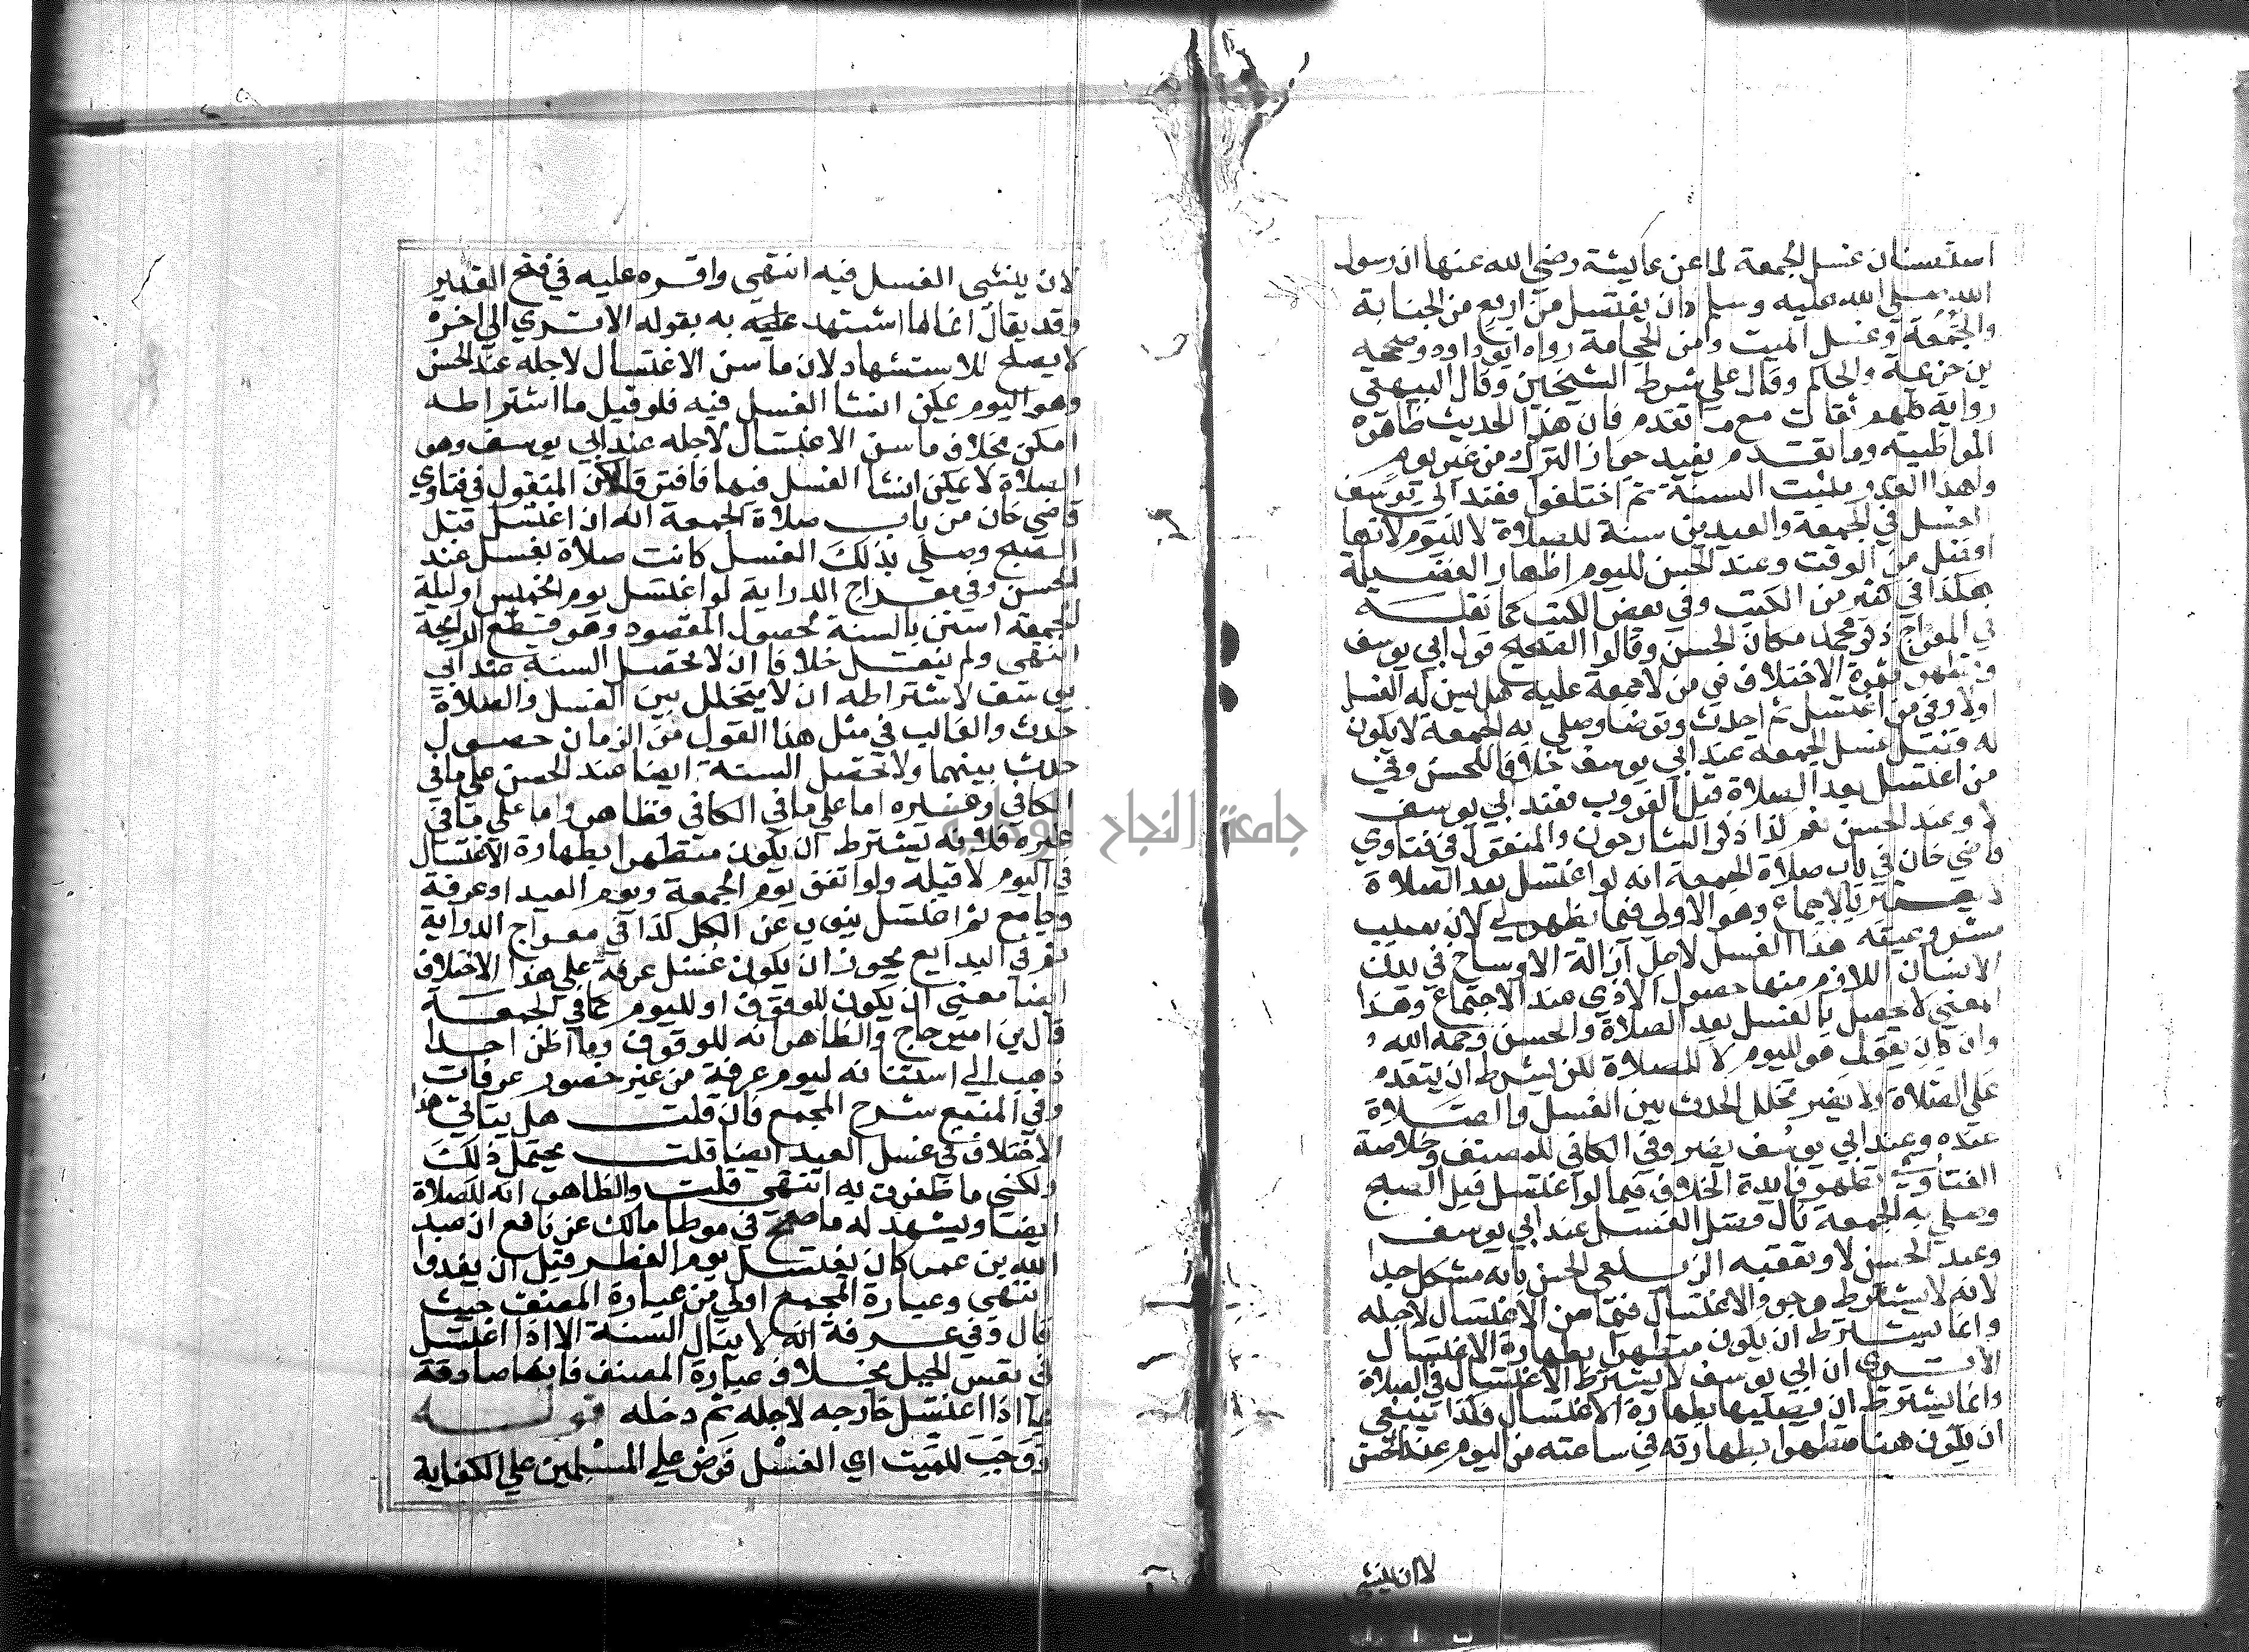 استسنان غسل الجمعة لما عن عايشة رضي الله عنها ان رسول
الله صلى الله عليه وسلم كان يغتسل من اربع من الجنابة
والجمعة وغسل الميت ومن الحجامة رواه ابو داود وصححه
بن خزيمة والحاكم وقال على شرط الشيخين وقال البيهقي
رواته كلهم ثقات مع ما تقدم فان هذا الحديث ظاهره
المواظبة وما تقدم يفيد جواز الترك من غير لوم
ولهذا القدر يثبت السنة ثم اختلفوا فعند ابي يوسف
الغسل في الجمعة والعيدين سنة للصلاة لا لليوم لانها
افضل من الوقت وعند الحسن لليوم اظهارا لفضيلة
هكذا في كثير من الكتب وفي بعض الكتب كما نقله
في المعراج ذكر محمد مكان الحسن وقالوا الصحيح قول ابي يوسف
وتظهر ثمرة الاختلاف في من لا جمعة عليه هل يسن له الغسل
اولا وفي من اغتسل ثم احدث وتوضا وصلى به الجمعة لا يكون
له فضل غسل الجمعة عند ابي يوسف خلافا للحسن وفي
من اغتسل بعد الصلاة قبل الغروب فعند ابي يوسف
لا وعند الحسن نعم كذا ذكر الشارحون والمنقول في فتاوي
قاضي خان في باب صلاة الجمعة انه لو اغتسل بعد الصلاة
لا يعتبر بالاجماع وهو الاولى فيما يظهر لي لان سبب
مشروعية هذا الغسل لاجل ازالة الاوساخ في بدن
الانسان اللازم منها حصول الاذي عند الاجتماع وهذا
المعنى لا يحصل بالغسل بعد الصلاة والحسن رحمه الله
وان كان يقول هو لليوم لا للصلاة لكن يشرط ان يتقدم
على الصلاة ولا يضر تخلل الحدث بين الغسل والصلاة
عنده وعند ابي يوسف يضر وفي الكافي للمصنف وخلاصة
الفتاوي تظهر فايدة الخلاف فيما لو اغتسل قبل الصبح
وصلى به الجمعة نال فضل الغسل عند ابي يوسف
وعند الحسن لا وتعقبه الزيلعي الحسن بانه مشكل جدا
لانه لا يشترط وجود الاغتسال فيما سن الاغتسال لاجله
وانما يشترط ان يكون متطهرا بطهارة الاغتسال
الا ترى ان ابي يوسف لا يشترط الاغتسال في الصلاة
وانما يشترط ان يصليها بطهارة الاغتسال فكذا ينبغي
ان يكون هنا متطهرا بطهارته في ساعته من اليوم عند الحسن
لا ان ينشي
لان ينشى الغسل فيه انتهى واقره عليه في فتح القدير
وقد يقال انما ما استشهد عليه به بقوله الا ترى الي اخره
لا يصلح للاستشهاد لان ما سن الاغتسال لاجله عند الحسن
وهو اليوم يمكن انشا الغسل فيه فلو قيل ما اشتراطه
امكن بخلاف ما سن الاغتسال لاجله عند ابي يوسف وهو
الصلاة لا يمكن انشا الغسل فيها فافترقا لكن المنقول في فتاوي
قاضي خان من باب صلاة الجمعة انه ان اغتسل قبل
الصبح وصلي بذلك الغسل كانت صلاة بغسل عند
الحسن وفي معراج الدراية لو اغتسل يوم الخميس او ليلة
الجمعة استن بالسنة لحصول المقصود وهو قطع الرايحة
انتهى ولم ينقل خلافا ان لا تحصل السنة عند ابي
يوسف لاشتراطه ان لا يتخلل بين الغسل والصلاة
حدث والغالب في مثل هذا القول من الزمان حصول
حدث بينهما ولا تحصل السنة ايضا عند الحسن على ما في
الكافي وغيره اما على ما في الكافي فظاهر واما على ما في
غيره فلانه يشترط ان يكون متطهرا بطهارة الاغتسال
في اليوم لا قبله ولو اتفق يوم الجمعة ويوم العيد او عرفة
وجامع ثم اغتسل ينوب عن الكل كذا في معراج الدراية
ثم في البدايع يجوز ان يكون غسل عرفة على هذا الاختلاف
ايضا معني ان يكون للوقوف او لليوم كما في الجمعة
قال بن امير حاج والظاهر انه للوقوف وما اظن احدا
ذهب الي استنانه ليوم عرفة من غير حضور عرفات
وفي المنبع شرح المجمع فان قلت هل يتاتى هذا
الاختلاف في غسل العيد ايضا قلت يحتمل ذلك
ولكني ما ظفرت به انتهى قلت والظاهر انه للصلاة
ايضا ويشهد له ما صح في موطا مالك عن نافع ان عبد
الله بن عمر كان يغتسل يوم الفطر قبل ان يغدوا
انتهى وعبارة المجمع اولى من عبارة المصنف حيث
قال وفي عرفة انه لا ينال السنة الا اذا اغتسل
في نفس الجبل بخلاف عبارة المصنف فانها صادقة
بما اذا اغتسل خارجه لاجله ثم دخله قوله
ووجب للميت اي الغسل فرض على المسلمين على الكفاية
جامعة النجاح الوطنية